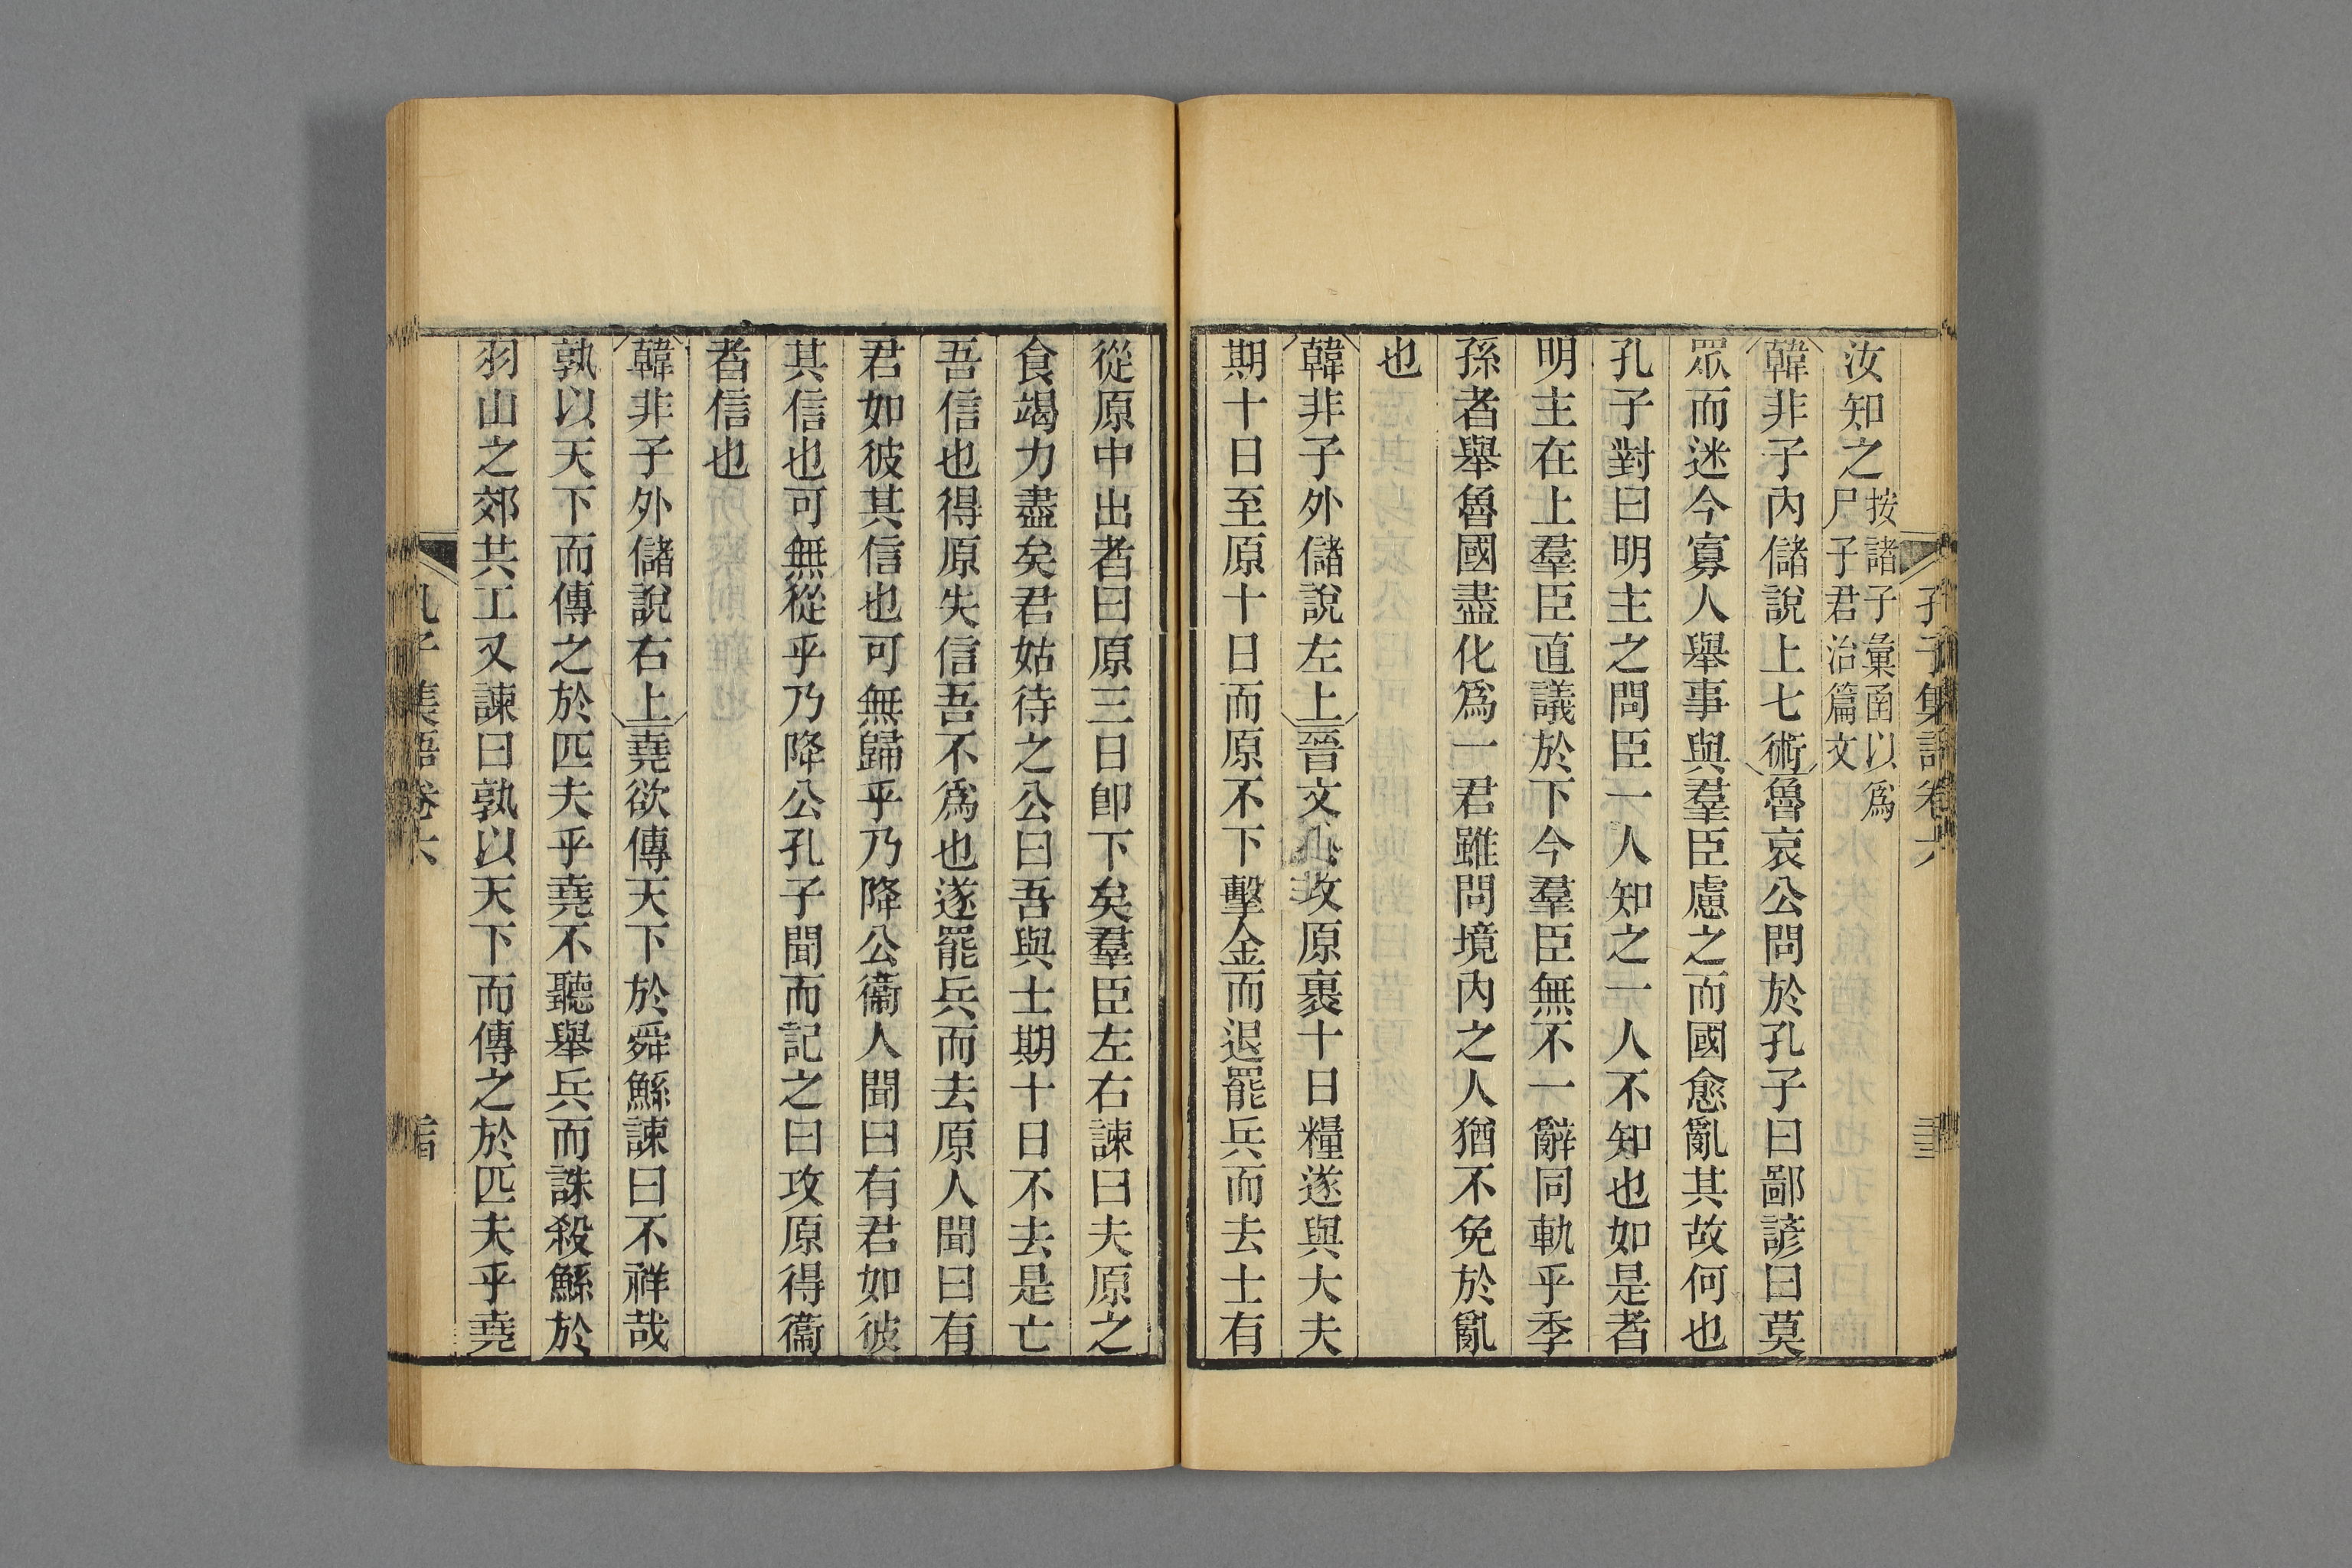 孔子集語卷六
汝知之按諸子彙函以爲
尸子君治篇文
韓非子內儲說上七術魯哀公問於孔子曰鄙諺曰莫
眾而迷今寡人舉事與羣臣慮之而國愈亂其故何也
孔子對曰明主之問臣一人知之一人不知也如是者
明主在上羣臣直議於下今羣臣無不一辭同軌乎季
孫者舉魯國盡化爲一君雖問境內之人猶不免於亂
也
韓非子外儲說左上晉文公攻原裹十日糧遂與大夫
期十日至原十日而原不下擊金而退罷兵而去士有
從原中出者曰原三日卽下矣羣臣左右諫曰夫原之
食竭力盡矣君姑待之公曰吾與士期十日不去是亡
吾信也得原失信吾不爲也遂罷兵而去原人聞曰有
君如彼其信也可無歸乎乃降公衞人聞曰有君如彼
其信也可無從乎乃降公孔子聞而記之曰攻原得衞
者信也
韓非子外儲說右上堯欲傳天下於舜鯀諫曰不祥哉
孰以天下而傳之於匹夫乎堯不聽舉兵而誅殺鯀於
羽山之郊共工又諫曰孰以天下而傳之於匹夫乎堯
孔子集語卷六